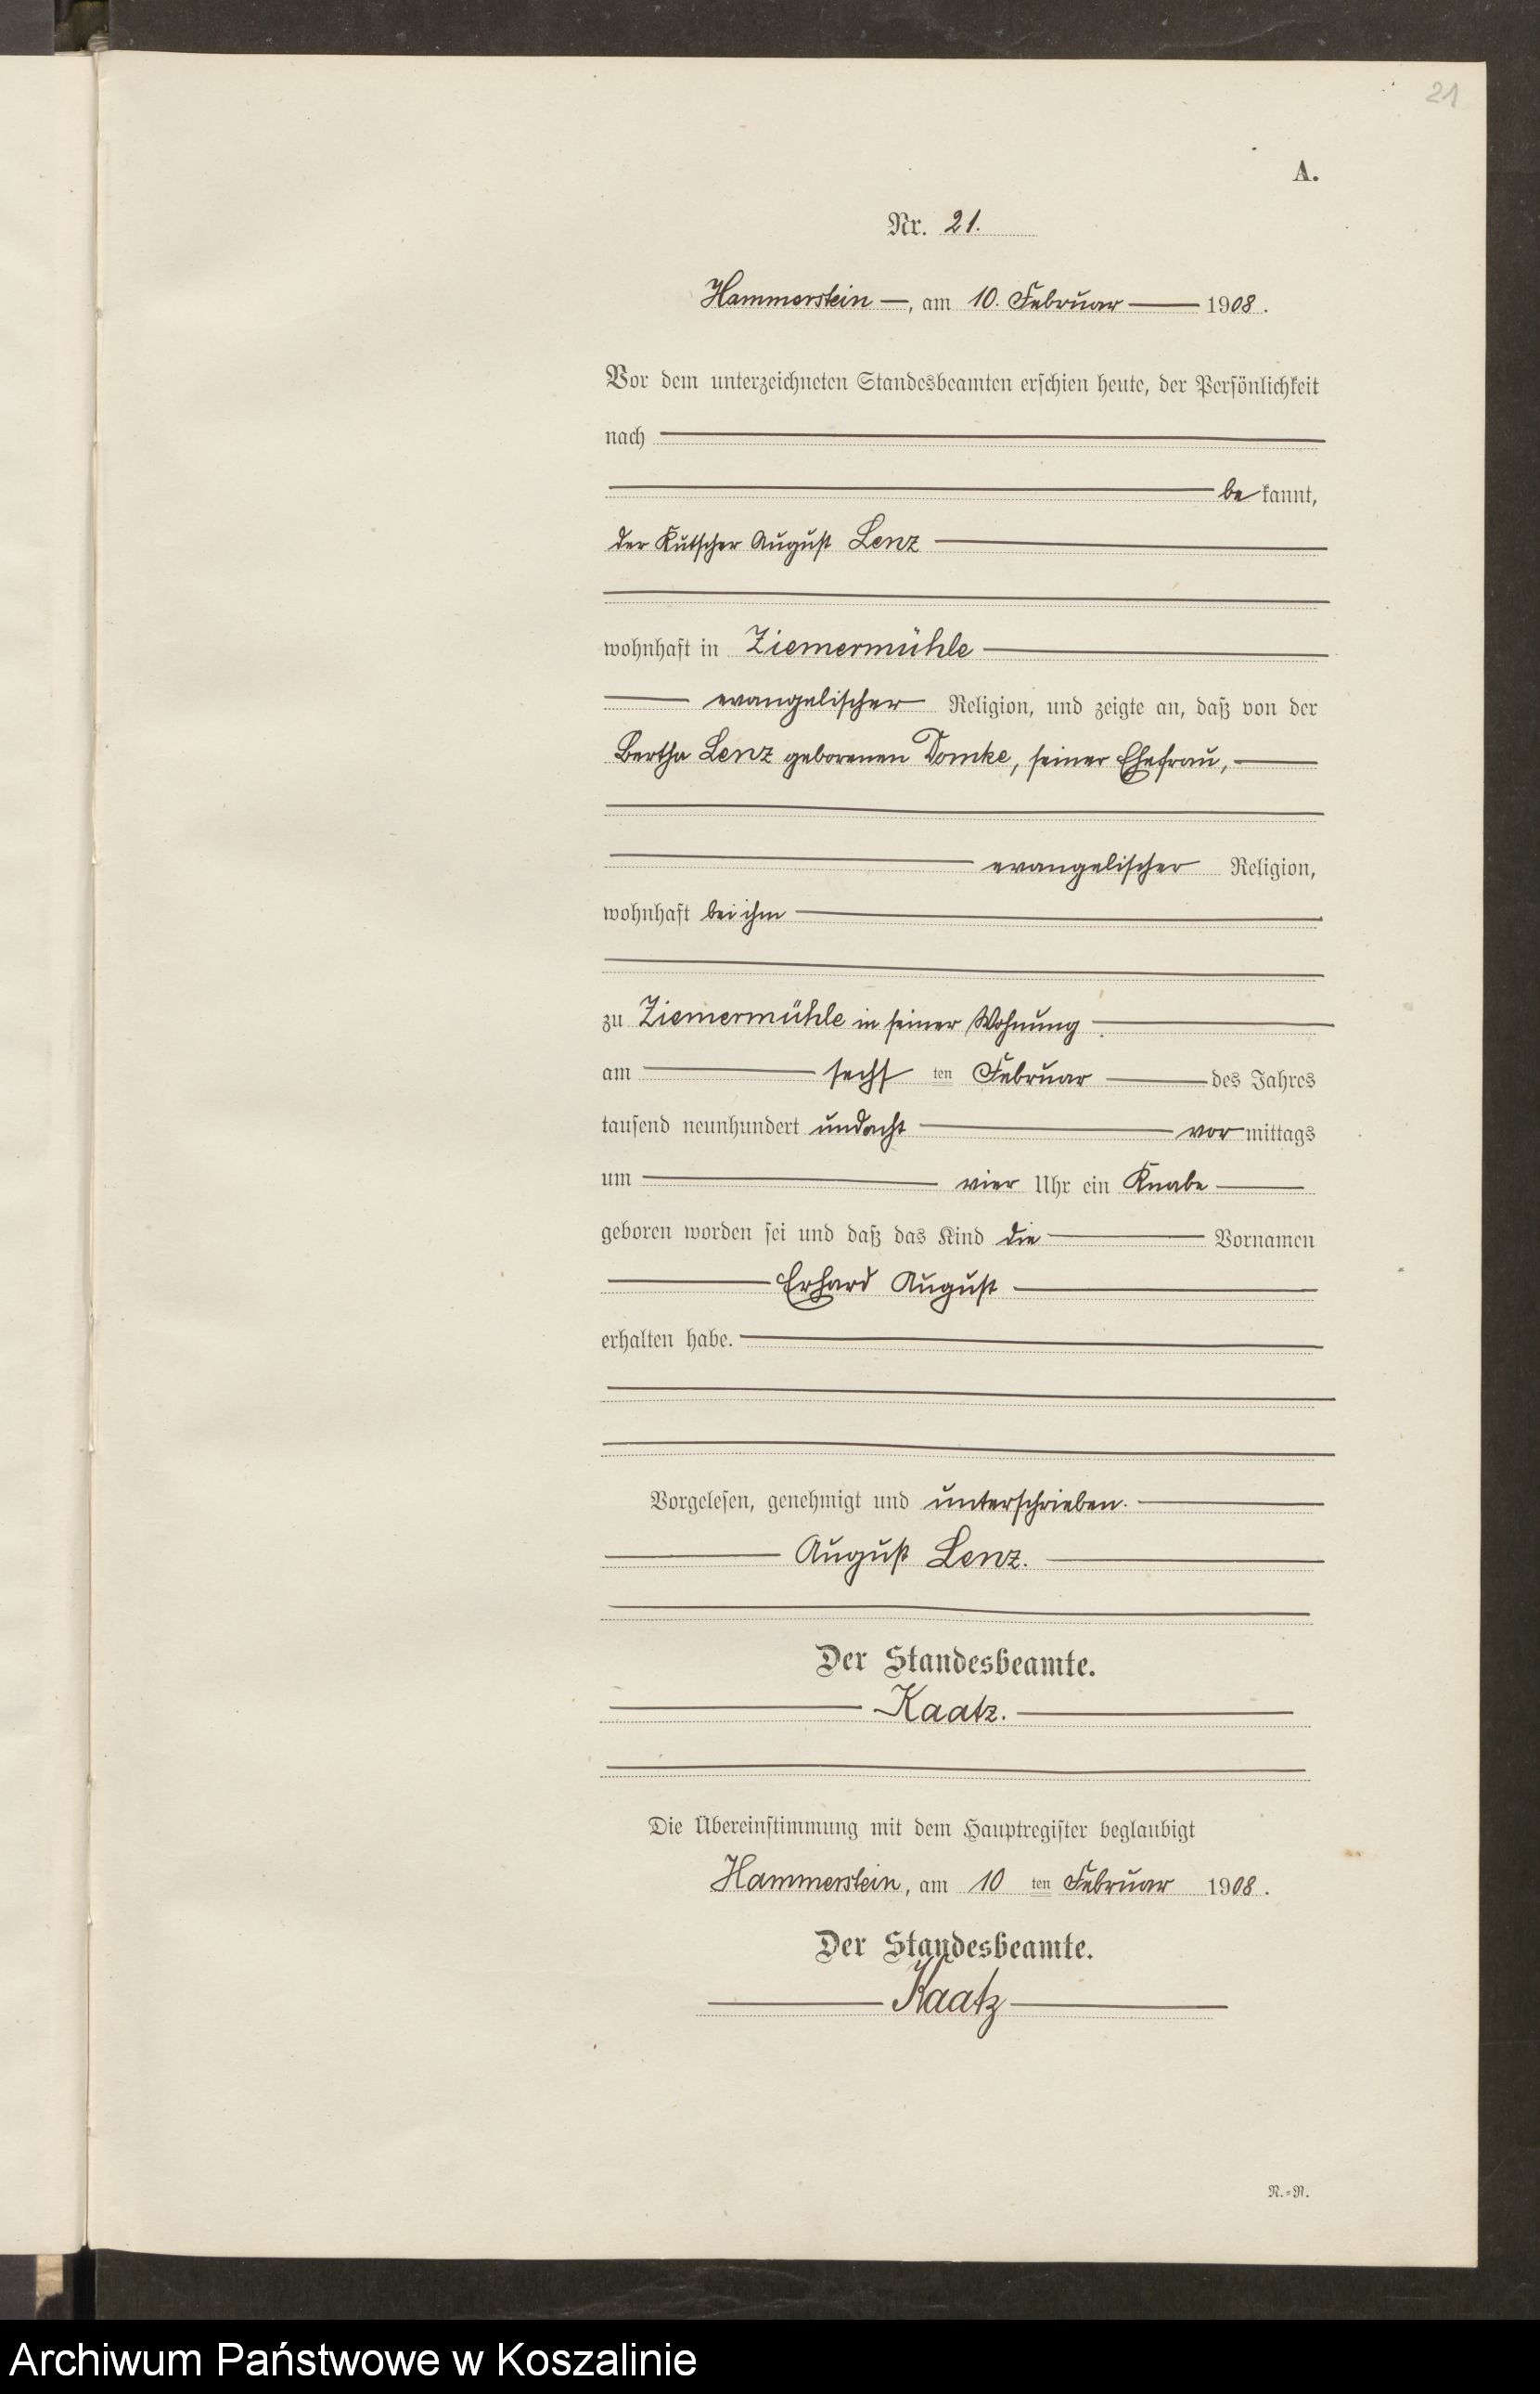 21
A.
Nr. 21.
Hammerstein —, am 10. Februar — 1908.
Vor dem unterzeichneten Standesbeamten erschien heute, der Persönlichkeit
nach
be kannt,
der Kutscher August Lenz
wohnhaft in Ziemermühle
evangelischer Religion, und zeigte an, daß von der
Bertha Lenz geborenen Domke, seiner Ehefrau,
evangelischer Religion,
wohnhaft bei ihm
zu Ziemermühle in seiner Wohnung
am sechs ten Februar des Jahres
tausend neunhundert undacht vor mittags
um vier Uhr ein Knabe
geboren worden sei und daß das Kind die Vornamen
Erhard August
erhalten habe.
Vorgelesen, genehmigt und unterschrieben.
August Lenz.
Der Standesbeamte.
Kaatz.
Die Übereinstimmung mit dem Hauptregister beglaubigt
Hammerstein, am 10 ten Februar 1908.
Der Standesbeamte.
Kaatz
N.=R.
Archiwum Państwowe w Koszalinie